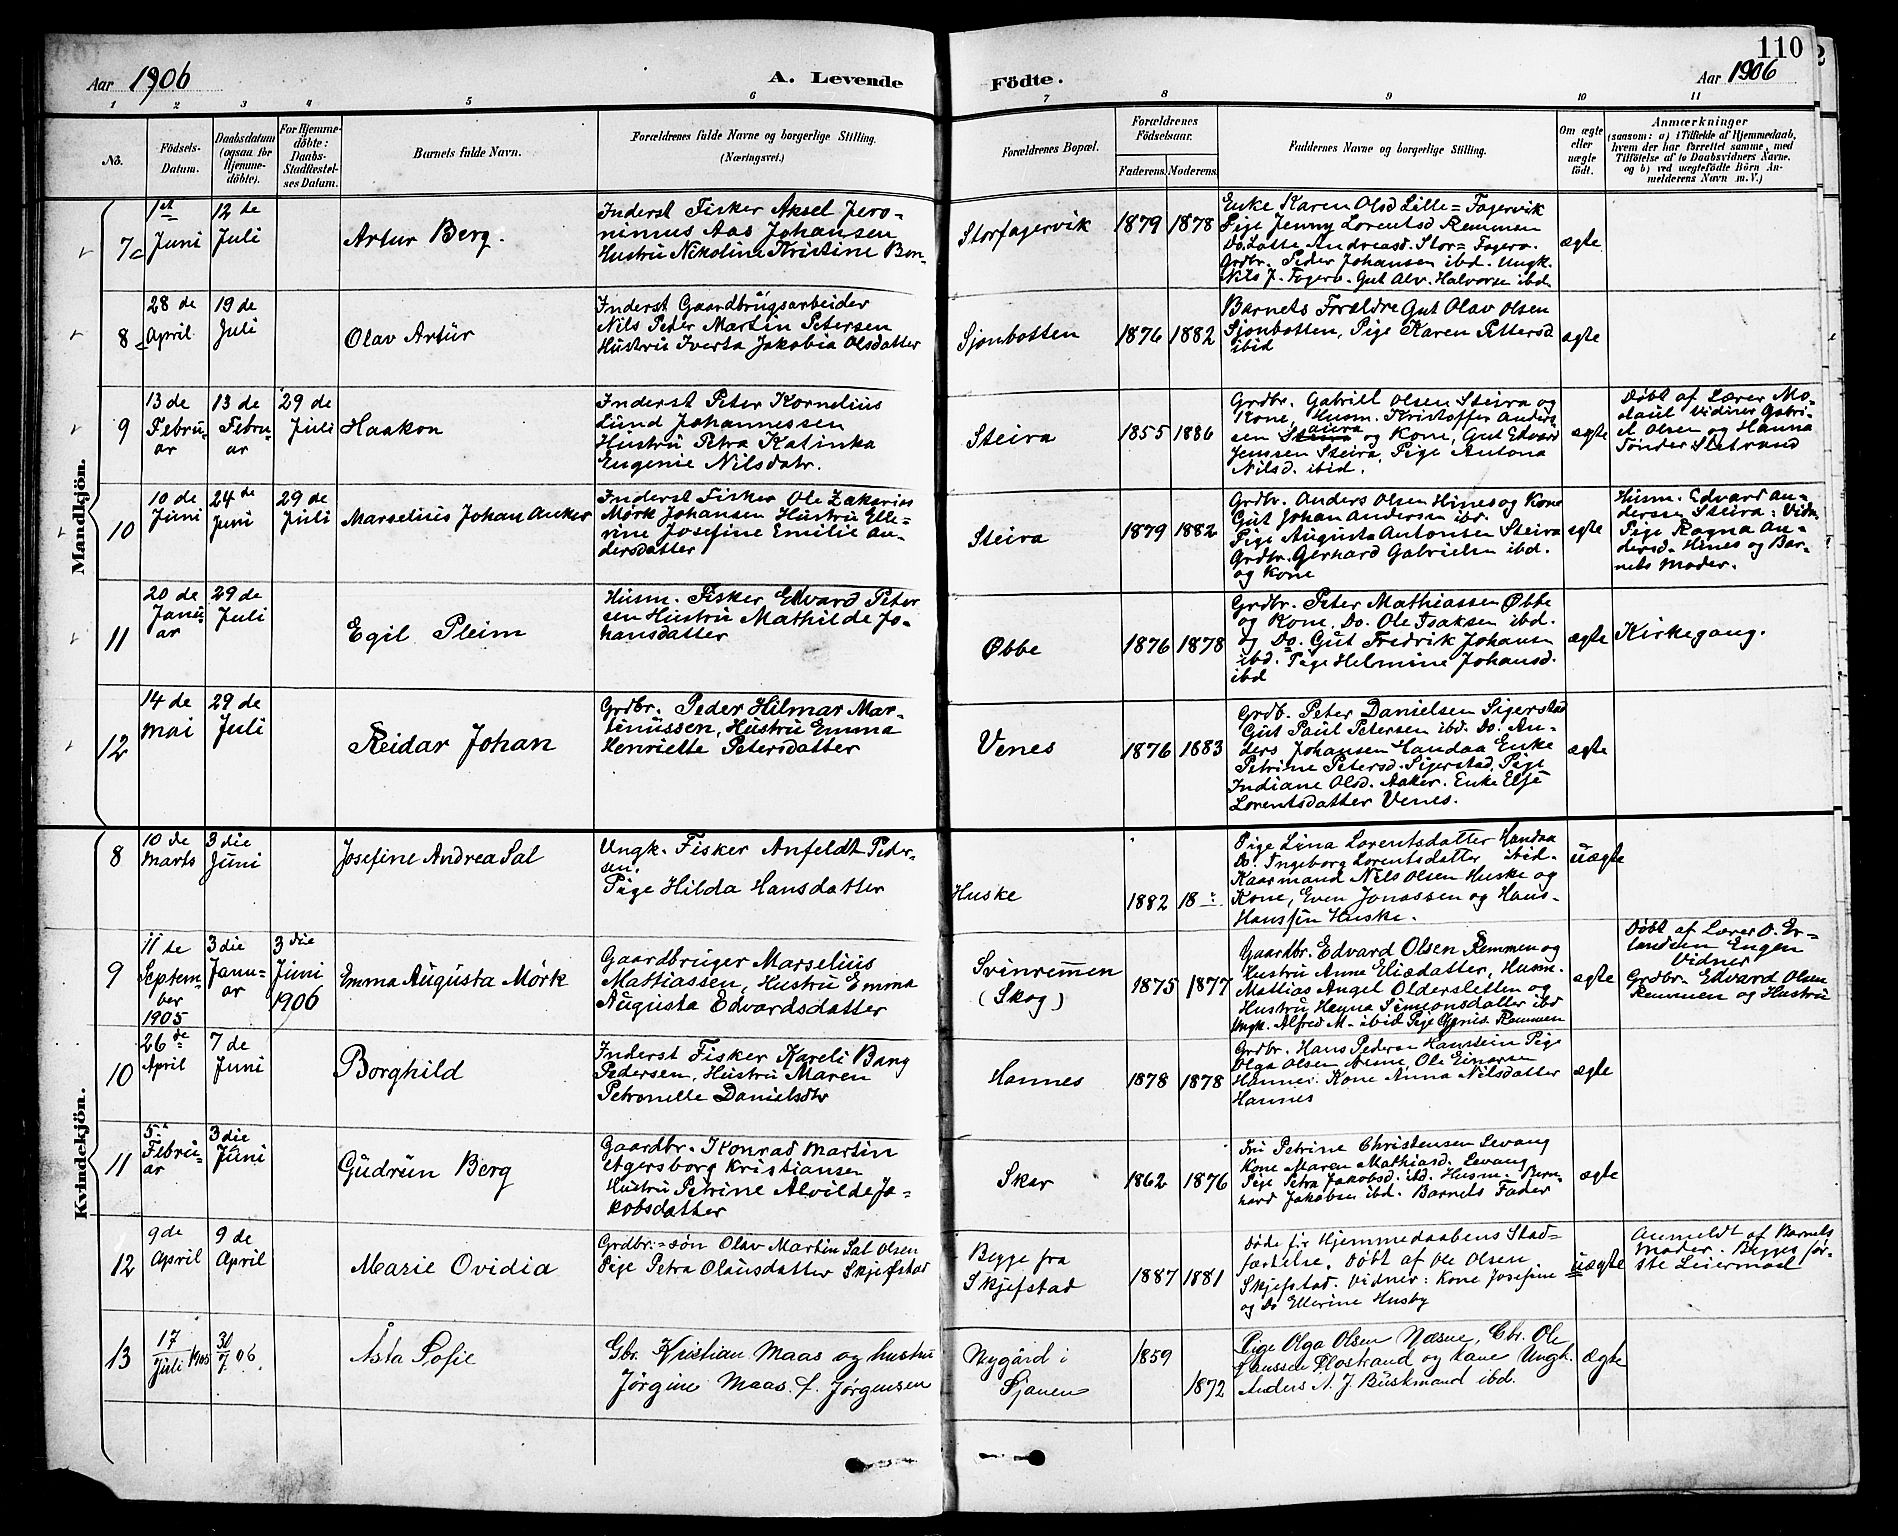 110
Aar 1906
A. Levende
Födte.
Aar 1906
1 2 3 4 5 6 7 8 9 10 11
No.
Födsels-
Datum.
Daabsdatum
(ogsaa for
Hjemme-
döbte).
For Hjemme-
döbte:
Daabs-
Stadfæstel-
ses Datum.
Barnets fulde Navn.
Forældrenes fulde Navne og borgerlige Stilling.
(Næringsvei.)
Forældrenes Bopæl.
Forældrenes
Födselsaar.
Faderens. Moderens.
Faddernes Navne og borgerlige Stilling.
Om ægte
eller
uægte
födt.
Anmærkninger
(saasom: a) i Tilfælde af Hjemmedaab,
hvem der har forrettet samme, med
Tilföielse af to Daabsvidners Navne,
og b) ved uægtefödte Börn An-
melderens Navn m. V.)
Mandkjön.
7
1st
Juni
12 de
Juli
Artur Berg.
Inderst Fisker Aksel Jero-
nimus Aas Johansen
Hustru Nikoline Kristine Ben-
Storfagervik
1879 1878
Enke Karen Olsd Lille = Fagervik
Pige Jenny Lorentsd Remmen
Do. Lotte Andreasd. Stor = Fagerv.
Grdbr. Peder Johansen ibd. Ungk.
Nils J. Fagerv. Gut Alv. Halvorse ibd.
ægte
8
28 de
April
19 de
Juli
Olav Artur
Inderst Gaardbrugsarbeider
Nils Peter Martin Petersen
Hustru Iverta Jakobia Olsdatter
Sjonbotten
1876 1882
Barnets Forældre Gut Olav Olsen
Sjonbotten, Pige Karen Pettersd
ibid
ægte
9
13 de
Febru-
ar
13 de
Febru-
ar
29 de
Juli
Haakon
Inderst Peter Kornelius
Lund Johannessen
Hustru Petra Katinka
Eugenie Nilsdatr.
Steira
1855 1886
Grdbr. Gabriel Olsen Steira og
Kone, Husm. Kristoffer Anders
sen Steira og Kone, Gut Edvard
Jenssen Steira, Pige Antona
Nilsd. ibid.
ægte
Døbt af Lærer Mo-
Vidner Gabri-
el Olsen og Hanna
Tønder
10
10 de
Juni
24 de
Juni
29 de
Juli
Marselius Johan Anker
Inderst Fisker Ole Zakarias
Mørk Johansen Hustru Elle-
rine Josefine Emilie An-
dersdatter
Steira
1879 1882
Grdbr. Anders Olsen Hines og Kone
Gut Johan Andersen ibd.
Pige Augusta Antonsen Steira
Grdbr. Gerhard Gabrielsen ibd.
og Kone
ægte
Husm. Edvard An-
dersen Steira: Vidn.
Pige Ragna An-
dersd. Hines og Bar-
nets Moder.
11
20 de
Janu-
ar
29 de
Juli
Egil Pleim
Husm. Fisker Edvard Peter
sen Hustru Mathilde Jo-
hansdatter
Øbbe
1876 1878
Grdbr. Peter Mathiassen Øbbe
og Kone, Do. Ole Isaksen ibd.
og Do. Gut Fredrik Johansen
ibd. Pige Helmine Johansd.
ibd
ægte
Kirkegang.
12
14 de
Mai
29 de
Juli
Reidar Johan
Grdbr. Peder Hilmar Mar-
tinussen, Hustru Emma
Henriette Petersdatter
Venes
1876 1883
Grdb. Peter Danielsen Sigerstad
Gut Paul Petersen ibd. Do. An-
ders Johansen Handaa Enke
Petrine Petersd. Sigerstad, Pige
Indiane Olsd. Aaker. Enke Else
Lorentsdatter Venes.
ægte
Kvindekjön.
8
10 de
Marts
3 die
Juni
Josefine Andrea Sal
Ungk. Fisker Anfeldt Peder-
sen.
Pige Hilda Hansdatter
Huske
1882 18
Pige Lina Lorentsdatter Handaa
Do. Ingeborg Lorentsdatter ibid.
Kaarmand Nils Olsen Huske og
Kone, Even Jonassen og Hans
Hanssen Huske.
uægte
9
11 te
Septem-
ber
1905
3 die
Janu-
ar
3 die
Juni
1906
Emma Augusta Mørk
Gaardbruger Marselius
Mattiassen, Hustru Emma
Augusta Edvardsdatter
Svinremmen
(Skog)
1875 1877
Gaardbr. Edvard Olsen Remmen og
Hustru Anne Eliedatter, Husm.
Mattias Angel Oldersletten og
Hustru Hanna Simonsdatter ibd
Ungk. Alfred M. ibid Pige Agnis Remmen
ægte
Døbt af Lærer O. Er-
landsen Engen
Vidner
Grdbr. Edvard Olsen
Remmen og Hustru
10
26 de
April
7 de
Juni
Borghild
Inderst Fisker Kareli Bang
Pedersen, Hustru Maren
Petronelle Danielsdtr
Hannes
1878 1878
Grdbr. Hans Pedersen Hanstein Pige
Olga Olsen Ole Einarsen
Hannes. Kone Anna Nilsdatter
Hannes
ægte
11
5.
Febru-
ar
3 die
Juni
Gudrun Berg
Gaardbr. Konrad Martin
Agersborg Kristiansen
Hustru Petrine Alvilde Ja-
kobsdatter
Skar
1862 1876
Fru Petrine Christensen Levang
Kone Maren Mathiasd. Levang
Pige Petra Jakobsd. ibd. Husm. Bern-
hard Jakobsen ibd. Barnets Fader
ægte
12
9 de
April
9 de
April
Marie Ovidia
Grdbr.-søn Olav Martin Sal Olsen
Pige Petra Olausdatter Skjefstad
Begge fra
Skjefstad
1887 1881
Døde før Hjemmedaabens Stad-
fæstelse. Døbt af Ole Olsen
Skjefstad. Vidner: Kone Josefine
og Do Ellerine Husby
uægte
Anmeldt af Barnets
Moder. Begges før-
ste Leiermaal
13
17
Juli 1905
30
7 06.
Åsta Sofie
Gbr. Kristian Maas og hustru
Jørgine Maas f. Jørgensen
Nygård i
Sjonen
1859
1872
Pige Olga Olsen Næsne, Gbr. Ole
Hanssen Flostrand og Kone Ungk.
Anders A. J. Buskmand ibd.
ægte